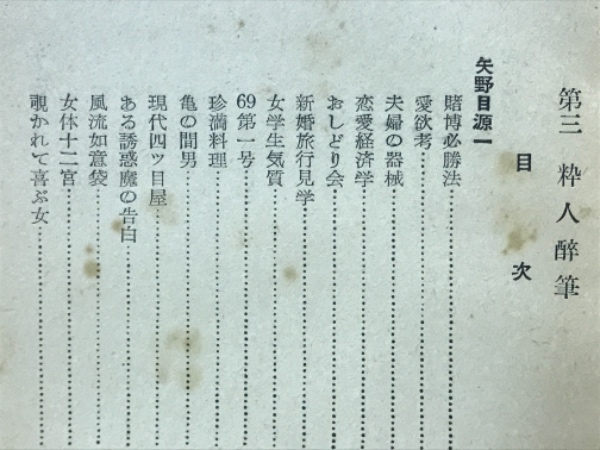 第三 粋人酔筆
目次
矢野目源一
賭博必勝法
愛欲考
夫婦の器械
恋愛経済学
おしどり会
新婚旅行見学
女学生気質
69第一号
珍満料理
亀の間男
現代四ッ目屋
ある誘惑魔の告白
風流如意袋
女体十二宮
覗かれて喜ぶ女